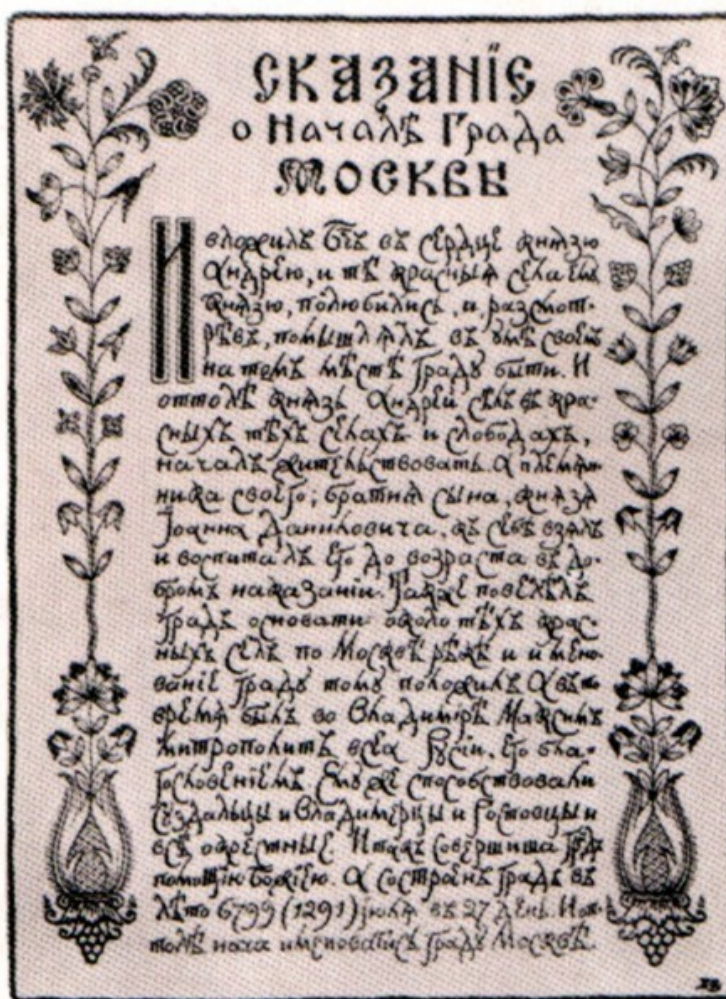 СКАЗАНІЕ
о Началѣ Града
МОСКВЫ
И вложилъ Бг҃ъ въ сердце князю
Андрею, и тѣ красныя села ему
князю, полюбились, и, разсмот-
рѣвъ, помышлялъ въ умѣ своемъ
на томъ мѣстѣ граду быти. И
оттолѣ князь Андрей сѣлъ въ кра-
сныхъ тѣхъ селахъ и слободахъ,
началъ жительствовать. А племян-
ника своего, братня сына, князя
Іоанна Даниловича, къ себѣ взялъ
и воспиталъ его до возраста въ до-
бромъ наказаніи. Также повелѣлъ
градъ основати около тѣхъ крас-
ныхъ селъ по Москвѣ рѣкѣ и имено-
ваніе граду тому положилъ. А въ то
время былъ во Владимірѣ Максимъ
митрополитъ всея Русіи. Его бла-
гословеніемъ. Ему же способствовали
Суздальцы и Владимерцы и Ростовцы и
всѣ окрестные. И такъ совершиша градъ
помощію Божіею. А состроенъ градъ въ
лѣто 6799 (1291) іюля въ 27 день. И от-
толѣ нача именоватись граду Москвѣ.